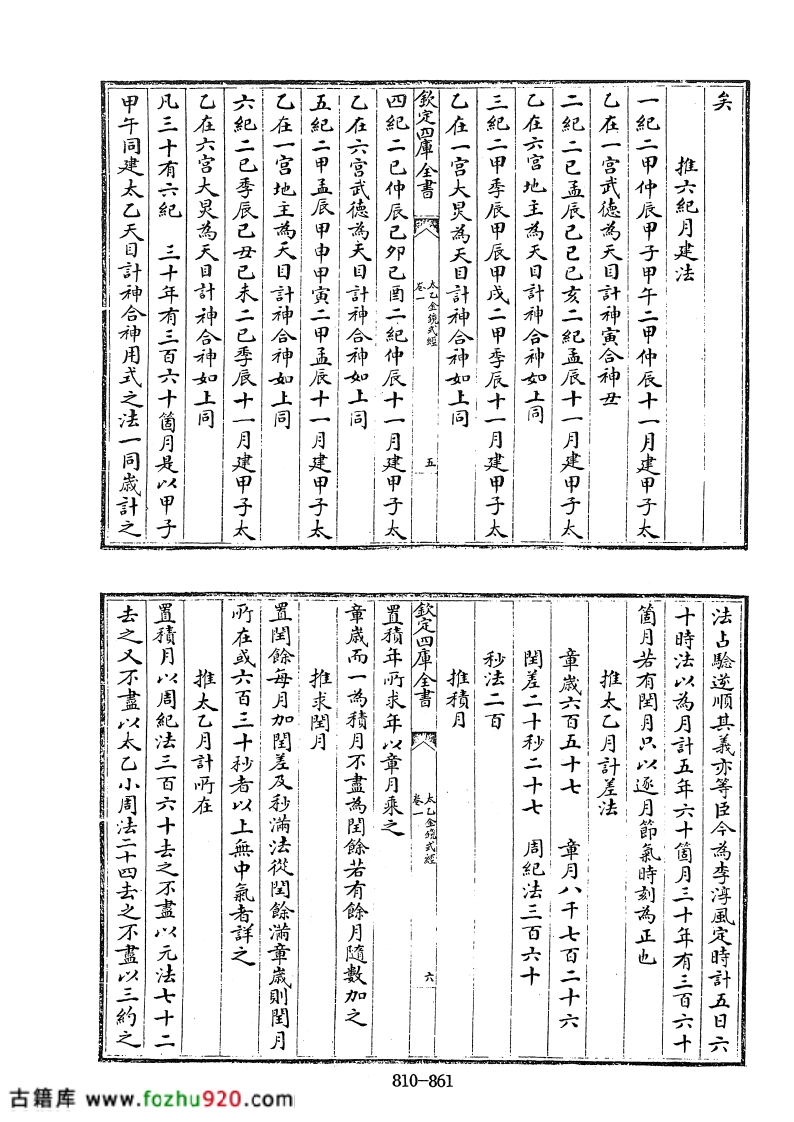 矣
推六紀月建法
一紀二甲仲辰甲子甲午二甲仲辰十一月建甲子太
乙在一宮武德為天目計神寅合神丑
二紀二己孟辰己巳己亥二紀孟辰十一月建甲子太
乙在六宮地主為天目計神合神如上同
三紀二甲季辰甲辰甲戌二甲季辰十一月建甲子太
乙在一宮大炅為天目計神合神如上同
欽定四庫全書
太乙金鏡式經
卷一
五
四紀二己仲辰己卯己酉二紀仲辰十一月建甲子太
乙在六宮武德為天目計神合神如上同
五紀二甲孟辰甲申甲寅二甲孟辰十一月建甲子太
乙在一宮地主為天目計神合神如上同
六紀二己季辰己丑己未二己季辰十一月建甲子太
乙在六宮大炅為天目計神合神如上同
凡三十有六紀 三十年有三百六十箇月是以甲子
甲午同建太乙天目計神合神用式之法一同歲計之
法占驗逆順其義亦等臣今為李淳風定時計五日六
十時法以為月計五年六十箇月三十年有三百六十
箇月若有閏月只以逐月節氣時刻為正也
推太乙月計差法
章歲六百五十七 章月八千七百二十六
閏差二十秒二十七 周紀法三百六十
秒法二百
推積月
欽定四庫全書
太乙金鏡式經
卷一
六
置積年所求年以章月乘之
章歲而一為積月不盡為閏餘若有餘月隨數加之
推求閏月
置閏餘每月加閏差及秒滿法從閏餘滿章歲則閏月
所在或六百三十秒者以上無中氣者詳之
推太乙月計所在
置積月以周紀法三百六十去之不盡以元法七十二
去之又不盡以太乙小周法二十四去之不盡以三約之
810-861
古籍库 www.fozhu920.com